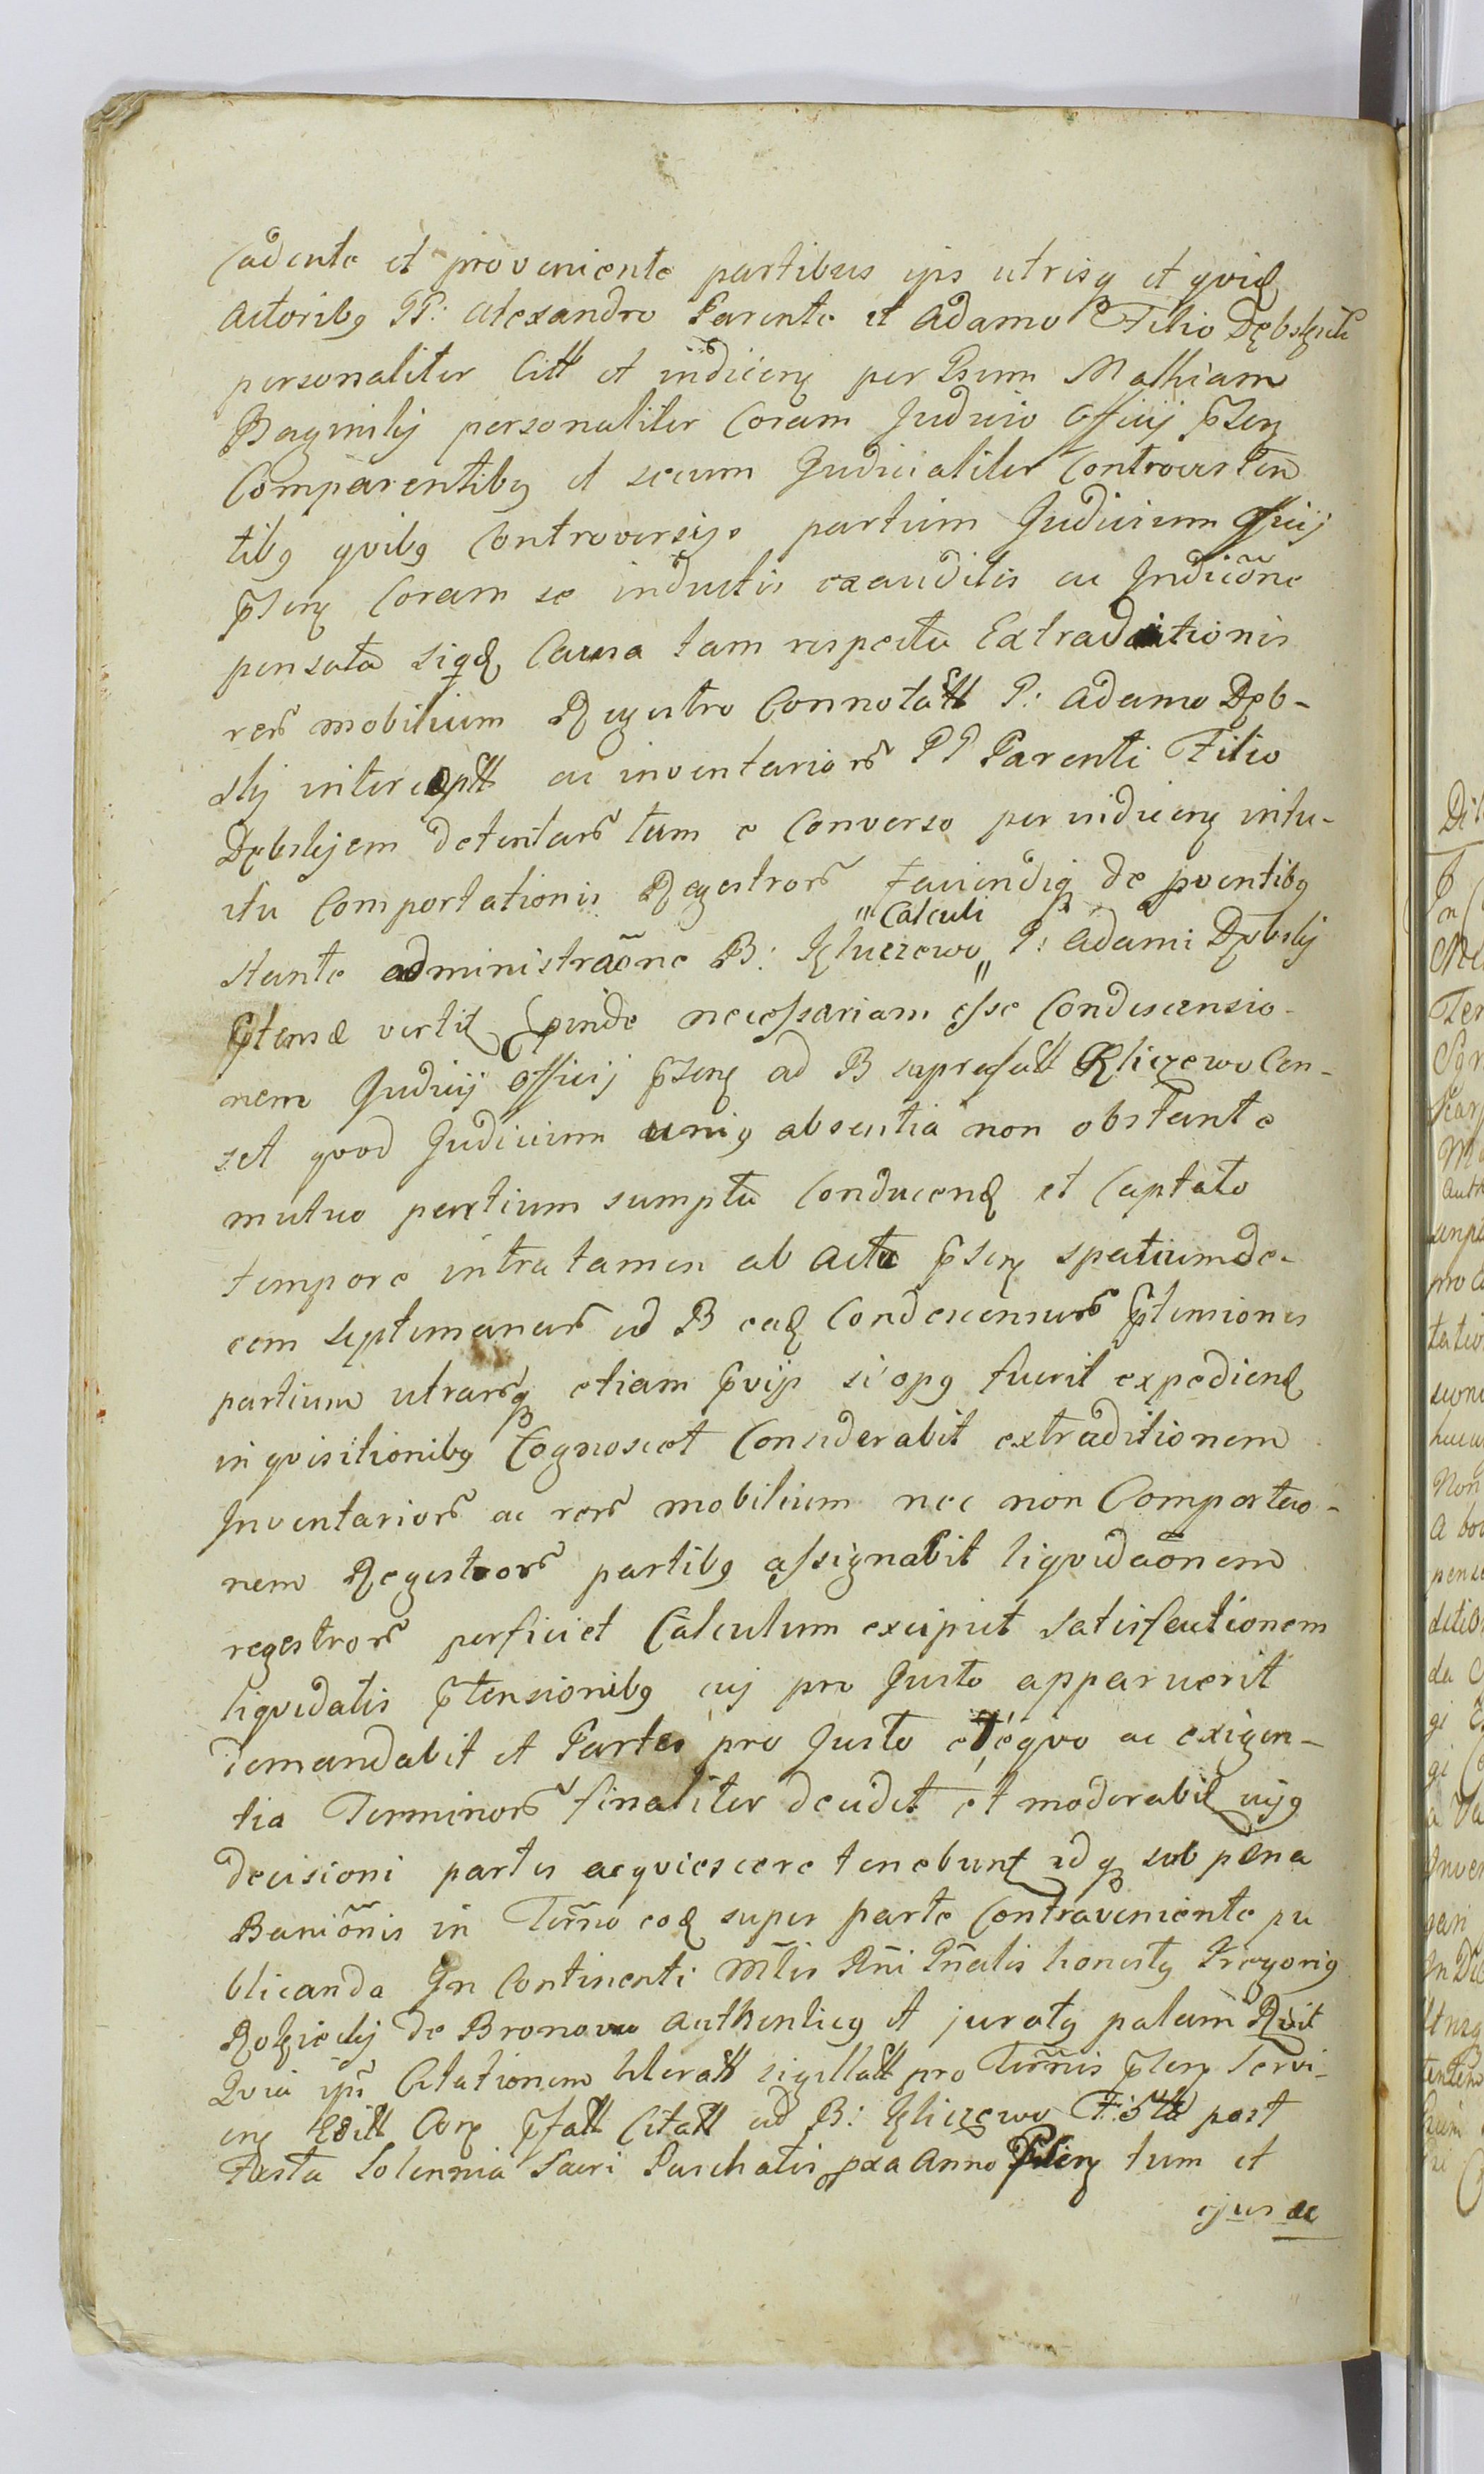 Cadente et proveniente partibus ips utrisq et qvid
Actoribq PP: Alexandro Parente et Adamo Filio Dębskjemi
personaliter Citt et indiceń per Gsum Mathiam
Baginskj personaliter Coram Judicio Officij p̃sen
Comparentibq et secum Judicialiter Controverten
tibq qvibq Controversijs partium Judicium Officij
p̃sen Coram se inductis exauditis ac Indicõne
pensata siqd Causa tam respectu Extraditionis
rerũ mobilium Regestro Connotatt P: Adamo Dęb-
skj interceptt ac inventariorũ PP Parenti Filio
Dębskjem detentarũ tum e Converso per indicen intu-
itu Comportationis Regestrorũ faciendiq de pventibq
stante administraõne B: Kluczewo "Calculi" P: Adami Dębskj
p̃tensæ vertit proinde necessariam esse Condescensio-
nem Judicij Officij p̃sen ad B suprafatt Kliczewo Cen-
set qvod Judicium uniq absentia non obstante
mutuo partium sumptu Conducend et Captato
tempore intra tamen ab actu p̃sen spatium de-
cem septimanarũ ad B ead Condescensurũ p̃tensiones
partium utrarũq etiam p̃vijs si opq fuerit expediend
inqvisitionibq Cognoscet Considerabit extraditionem
Inventariorũ ac rerũ mobilium nec non Comportao-
nem Regestrorũ partibq assignabit liqvidaõnem
regestrorũ perficiet Calculum excipiet satisfactionem
liqvidatis p̃tensionibq cuj pro Justo apparuerit
demandabit et Partes pro Justo et æqvo ac exigen-
tia Terminorũ finaliter decidet et moderabit cujq
decisioni partes acqviescere tenebunt idq sub pæna
Baniõnis in Termo eod super parte Contraveniente pu
blicanda In Continenti Mlis Rñi Gñalis honestq Gregoriq
Rokickj de Bronowo Authenticq et juratq palam Rvit
Qvia ipse Citationem literatt sigillatt pro Termis p̃sen Servi-
en Editt Con p̃fatt Citatt ad B: Kliczewo F: 5ta post
Festa Solennia Sacri Paschatis pxa Anno p̃sen tum et
ejus ac